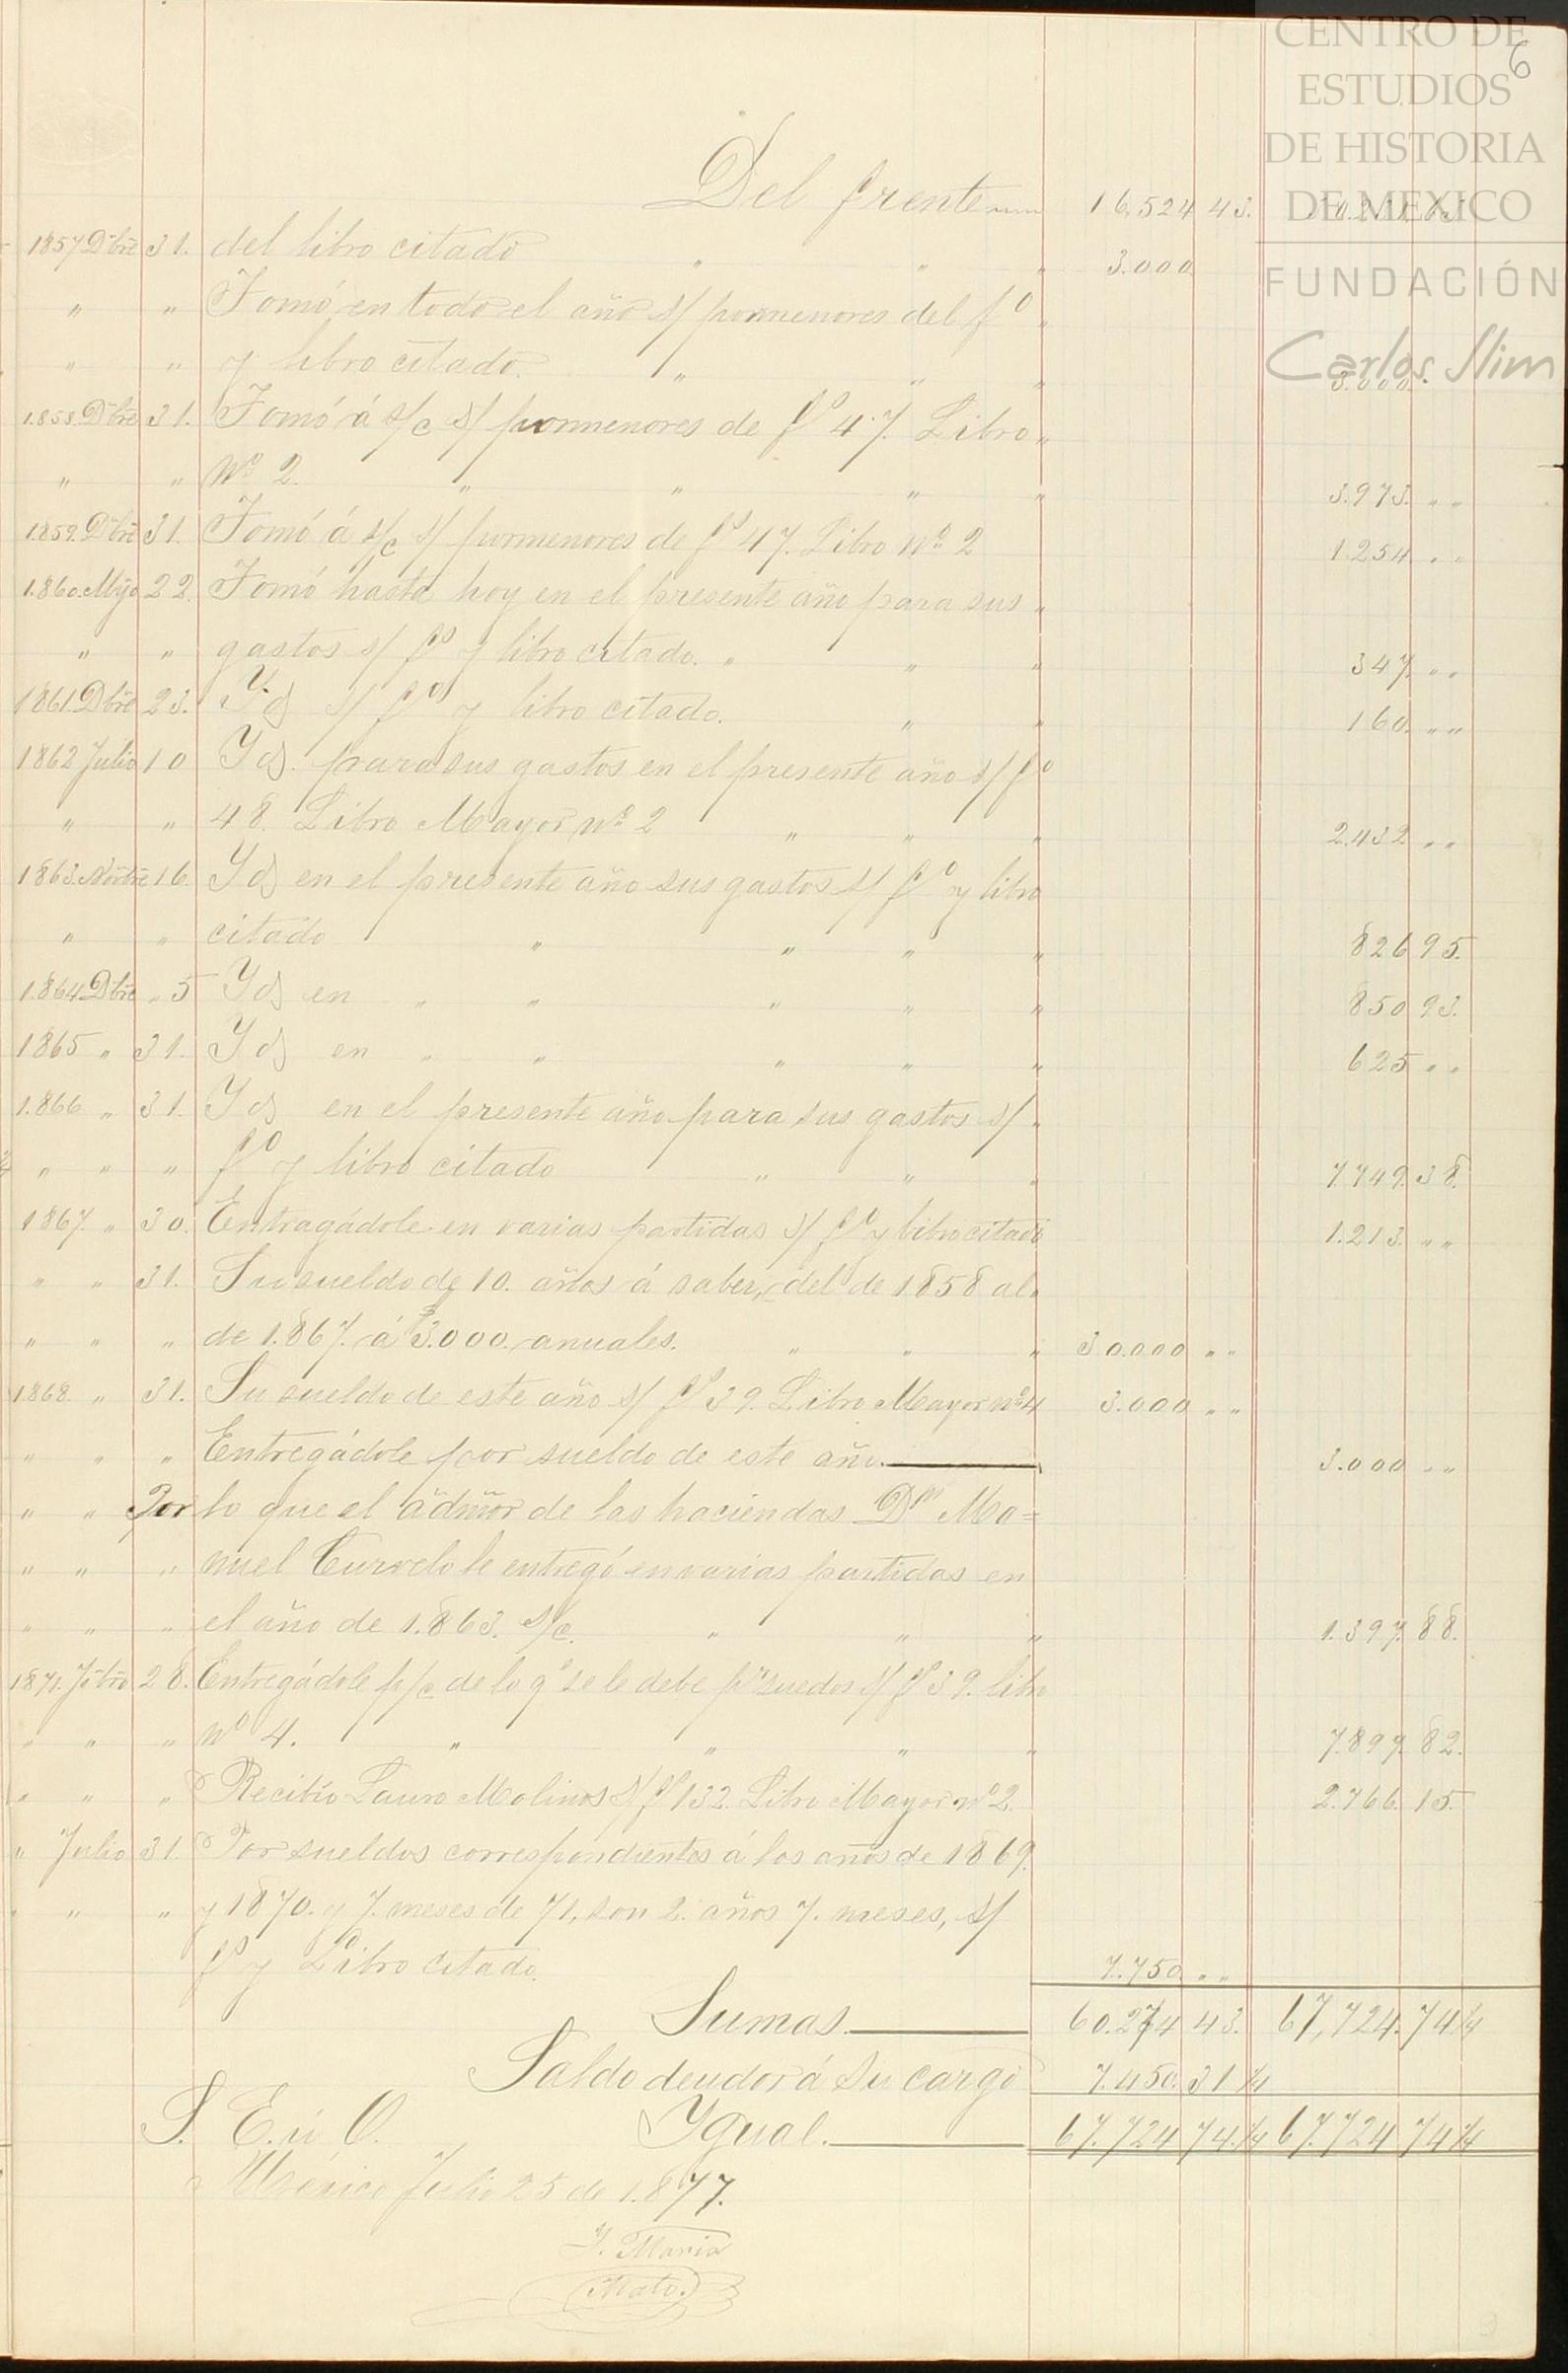 CENTRO DE
ESTUDIOS
DE HISTORIA
DE MEXICO
FUNDACIÓN
Carlos Slim
6
Del frente 16,524 43.
1857 Dbre 31. del libro citado " " " 3.000
" " Tomó en todo el año s/ pormenores del fo "
" " y libro citado. " " " 3.000
1.858. Dbre 31. Tomó á s/c s/ pormenores de fo 47. Libro "
" " No 2. " " " " 3.973. " "
1.859. Dbre 31. Tomó á s/c s/ pormenores de fo 47. Libro No 2 1.254 " "
1.860. Myo 22. Tomó hasta hoy en el presente año para sus "
" " gastos s/ fo y libro citado. " " " 347. " "
1861. Dbre 23. Yd s/ fo y libro citado. " " 160. " "
1862 Julio 10 Yd. para sus gastos en el presente año s/ fo
" " 48. Libro Mayor No 2 " " " 2.432 " "
1863. Novbre 16. Yd en el presente año sus gastos s/ fo y libro
" " citado " " " " 826 95.
1.864 Dbre " 5 Yd en " " " " " 850 93.
1865 " 31. Yd en " " " " " 625 " "
1.866 " 31. Yd en el presente año para sus gastos s/ "
" " " fo y libro citado " " " 7.749. 38.
1867. " 30. Entragádole en varias partidas s/ fo y libro citado 1.213. " "
" " 31. Su sueldo de 10. años á saber, del de 1858 al "
" " " de 1.867. á $3.000. anuales. " " " 30.000 " "
1868. " 31. Su sueldo de este año s/ fo 39. Libro Mayor No 4 3.000 " "
" " " Entregádole por sueldo de este año. 3.000 " "
" " Por lo que el admor de las haciendas Dn Ma=
" " " nuel Curvelo le entregó en varias partidas en
" " " el año de 1.863. s/c. " " " 1.397. 88.
1871. 28. Entregádole p/c de lo q' se le debe pr suedos s/ fo 39. libro
" " " No 4. " " " " 7.899. 82.
" " " Recibió Lauro Molinos s/ fo 132. Libro Mayor No 2. 2.766. 15.
" Julio 31. Por sueldos correspondientes á los años de 1869.
" " " y 1870. y 7. meses de 71, son 2. años 7. meses, s/
fo y Libro citado. 7.750 " "
Sumas. 60.274 43. 67,724. 74 1/4
Saldo deudor á su cargo 7.450. 31 1/4
S. E. ú O. Ygual. 67.724 74. 1/4 67.724 74 1/4
México Julio 25 de 1.877.
J. Maria
Mato.